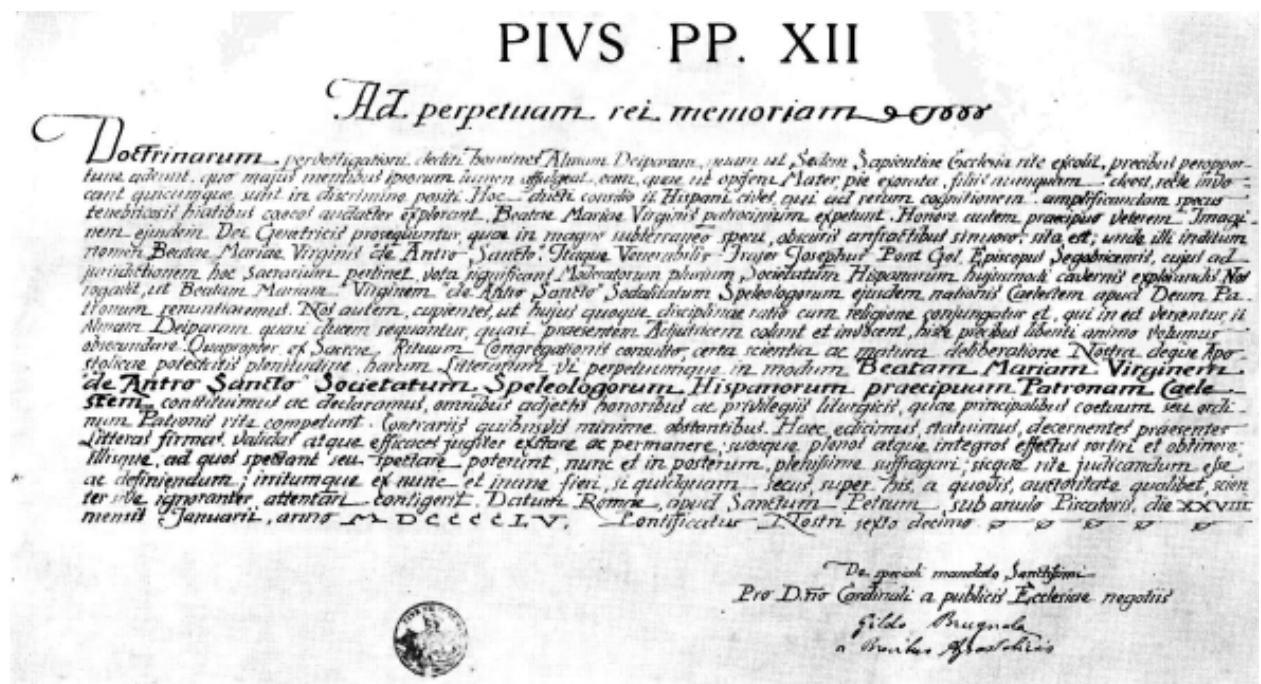 PIVS PP. XII
Ad perpetuam rei memoriam
Doctrinarum pervestigationi dediti homines Almam Deiparam, quam ut Sedem Sapientiae Ecclesia rite excolit, precibus peroppor-
tune adeunt, quo majus mentibus ipsorum lumen affulgeat, eam, quae ut opifera Mater, pie exorata, filiis nunquam deest, recte invo-
cant quicumque sunt in discrimine positi. Hoc ducti consilio ii Hispani cives, qui ad rerum cognitionem amplificandam specus
tenebricosis hiatibus caecos audacter explorant, Beatae Mariae Virginis patrocinium expetunt. Honore autem praecipuo veterem Imagi-
nem ejusdem Dei Genetricis prosequuntur, quae in magno subterraneo specu, obscuris anfractibus sinuoso, sita est; unde illi inditum
nomen Beatae Mariae Virginis "de Antro Sancto". Itaque Venerabilis Frater Josephus Pont Gol, Episcopus Segobricensis, cujus ad
jurisdictionem hoc sacrarium pertinet, vota significans Moderatorum plurium Societatum Hispanarum hujusmodi cavernis explorandis Nos
rogavit, ut Beatam Mariam Virginem "de Antro Sancto" Sodalitatum Speleologorum ejusdem nationis Caelestem apud Deum Pa-
tronam renuntiaremus. Nos autem, cupientes, ut hujus quoque disciplinae ratio cum religione conjungatur et, qui in ea versentur, ii
Almam Deiparam quasi ducem sequantur, quasi praesentem Adjutricem colant et invocent, hisce precibus libenti animo volumus
obsecundare. Quapropter, ex Sacrae Rituum Congregationis consulto, certa scientia ac matura deliberatione Nostra deque Apo-
stolicae potestatis plenitudine, harum Litterarum vi perpetuumque in modum Beatam Mariam Virginem
"de Antro Sancto" Societatum Speleologorum Hispanorum praecipuam Patronam Caele-
stem constituimus ac declaramus, omnibus adjectis honoribus ac privilegiis liturgicis, quae principalibus coetuum seu ordi-
num Patronis rite competunt. Contrariis quibusvis minime obstantibus. Haec edicimus, statuimus, decernentes praesentes
Litteras firmas, validas atque efficaces jugiter exstare ac permanere; suosque plenos atque integros effectus sortiri et obtinere;
illisque, ad quos spectant seu spectare poterunt, nunc et in posterum, plenissime suffragari; sicque rite judicandum esse
ac definiendum; irritumque ex nunc et inane fieri, si quidquam secus, super his, a quovis, auctoritate qualibet, scien
ter sive ignoranter attentari contigerit. Datum Romae, apud Sanctum Petrum, sub anulo Piscatoris, die XXVIII
mensis Januarii, anno MDCCCCLV, Pontificatus Nostri sexto decimo.
De speciali mandato Sanctissimi
Pro D.no Cardinali a publicis Ecclesiae negotiis
Gildo Brugnola
a Brevibus Apostolicis